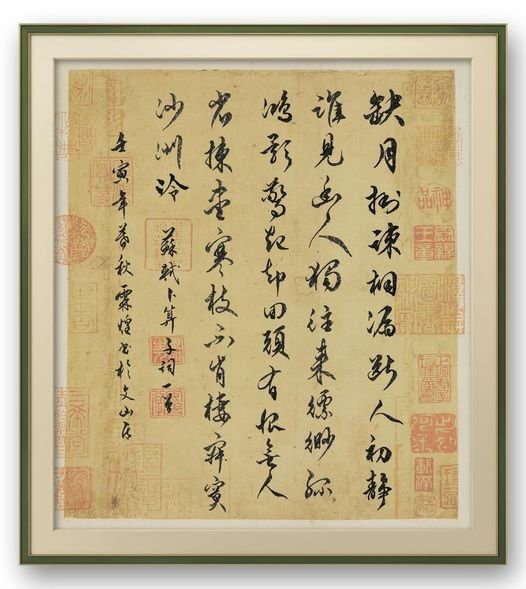 缺月掛疎桐漏断人初静
誰見幽人獨往来縹緲孤
鴻影驚起却回頭有恨無人
省揀盡寒枝不肯棲寂寞
沙洲冷
蘇軾卜算子詞一首
壬寅年暮秋霖煌書於文山居